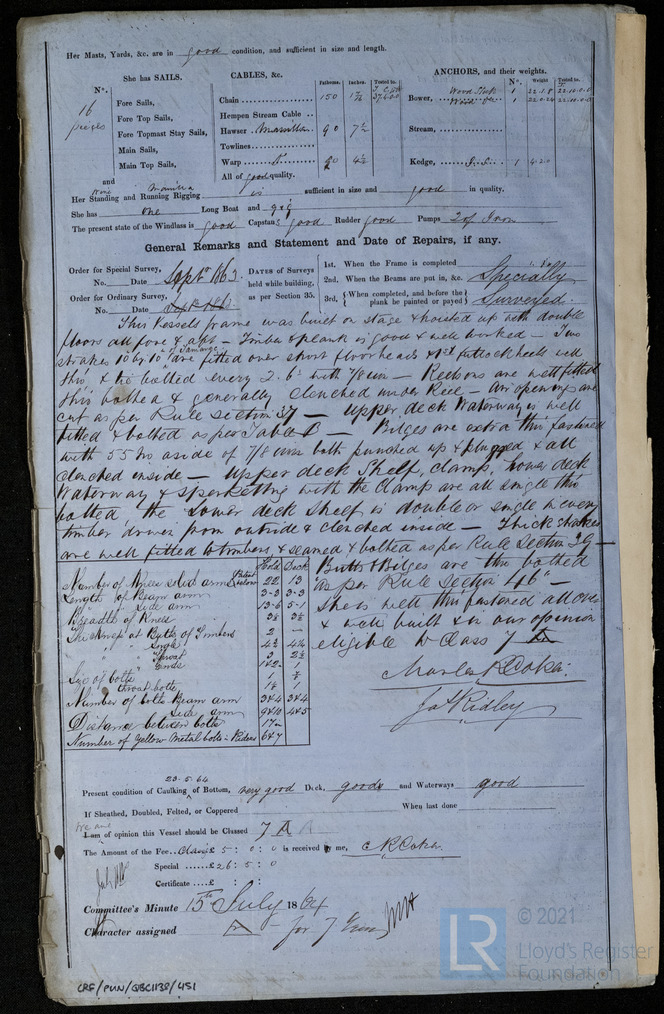 Her Masts, Yards, &c. are in good condition, and sufficient in size and length.
She has SAILS. CABLES, &c. Fathoms. Inches. Tested to ANCHORS, and their weights. Nº. Weight
Nº.
16 pieces
Fore Sails,
Fore Top Sails,
Fore Topmast Stay Sails,
Main Sails,
Main Top Sails,
and
Chain 150 1½
Hempen Stream Cable
Hawser Manilla 90 7½
Towlines
Warp 90 4½
All of good quality.
Bower, 1 22.1.8 22.10.0.0
1 22.0.24 22.10.0.0
Stream,
Kedge, 1 4.2.0
Her Standing and Running Rigging Wire Manilla is sufficient in size and good in quality.
She has one Long Boat and gig
The present state of the Windlass is good Capstan good Rudder good Pumps 2 of Iron
General Remarks and Statement and Date of Repairs, if any.
Order for Special Survey,
No. Date Septr 1863
Order for Ordinary Survey,
No. Date
DATES of Surveys held while building, as per Section 35.
1st. When the Frame is completed
2nd. When the Beams are put in, &c. Specially
3rd. {When completed, and before the plank be painted or payed} Surveyed.
This vessels frame was built on stage & hoisted up with double
floors all fore & aft – Timber & plank is good & well worked – Two
strakes 10 by 10 of Tamarac are fitted over short floor heads & 1st futtock heels well
thro' & thro bolted every 2.6 with 7/8 iron – Keelsons are well fitted
thro' bolted & generally clenched under Keel – Air openings are
cut as per Rule Section 37 – Upper deck Waterway is well
fitted & bolted as per Table C – Bilges are extra thro fastened
with 55 No aside of 7/8 iron bolts punched up & plugged & all
clenched inside – Upper deck Shelf, clamp, Lower deck
Waterway & Sperketting with the Clamp are all single thro
bolted the Lower deck Shelf is double or single in every
timber driven from outside & clenched inside – Thick strakes
are well fitted to timbers, & seamed & bolted as per Rule Section 39 –
Butts & Bilges are thro bolted
"as per Rule Section 46" –
She is well thro' fastened all over
& well built & in our opinion
eligible to Class 7 A
Charles R Coker
Jos Ridley
Hold Deck
Number of Knees sted arm below 22 13
Length of Beam arm 3-3 3-3
" " Side arm 13-6 5-1
Breadth of Knees 3½ 3½
Thickness at Butts of Timbers 2 –
" " Angle 4½ 4¼
" " Throat 3 2½
" " Ends 1
Size of bolts 1 7/8
" throat bolts 1⅛ 1
Number of bolts Beam arm 344 344
" " Side arm 445
Distance between bolts 17
Number of Yellow Metal bolts – Riders 647
23.5.64
Present condition of Caulking of Bottom, very good Deck, good and Waterways good
If Sheathed, Doubled, Felted, or Coppered When last done
We are
I am of opinion this Vessel should be Classed 7 A
The Amount of the Fee £ 5 : 0 : 0 is received by me, C R Coker
Special £ 26 : 5 : 0
Certificate £ : :
Committee's Minute 15th July 1864
Character assigned A – for 7 Years
CRF/PUN/QBC1138/451
LR
© 2021
Lloyd's Register
Foundation